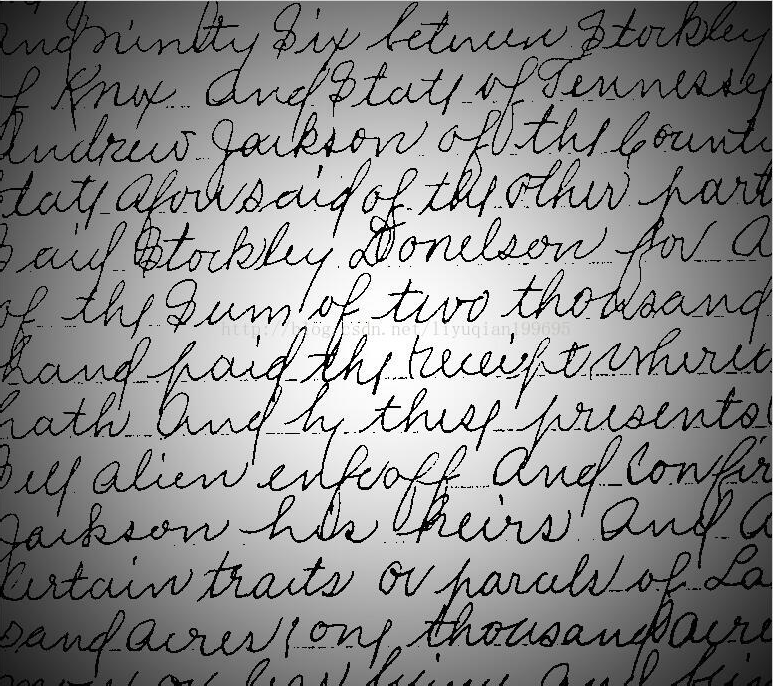 and ninety Six between Stockley
of Knox and State of Tennessee
Andrew Jackson of the County
State aforesaid of the other part
Said Stockley Donelson for a
of the Sum of two thousand
http://blog.csdn.net/liyuqian199695
hand paid the receipt where
hath and by these presents
Sell alien enfeoff and Confir
Jackson his heirs and a
Certain traits or parcels of La
sand acres one thousand acre
more or less being and bein